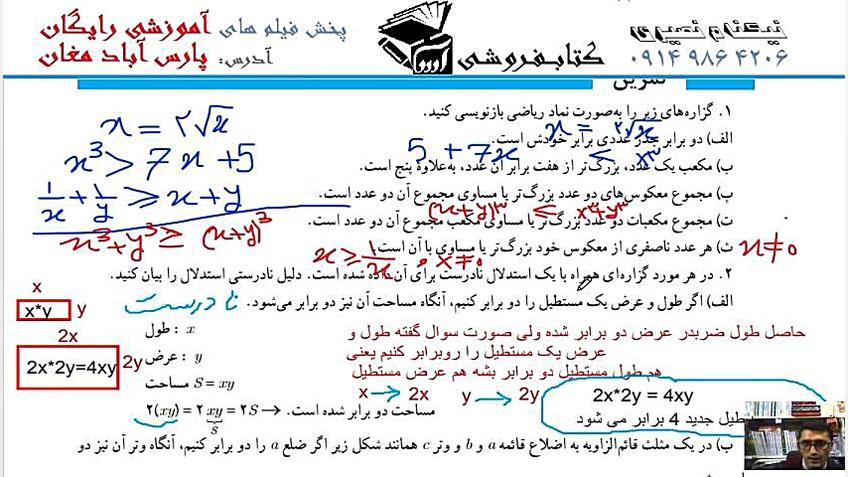 پخش فیلم های آموزشی رایگان
آدرس: پارس آباد مغان
کتابفروشی
نیکنام نصیری
۰۹۱۴ ۹۸۶ ۴۲۰۶
تمرین
۱. گزاره‌های زیر را به‌صورت نماد ریاضی بازنویسی کنید.
الف) دو برابر جذر عددی برابر خودش است. x = ۲√x
x = ۲√x
ب) مکعب یک عدد، بزرگ‌تر از هفت برابر آن عدد، به‌علاوهٔ پنج است. x³ > 5 + 7x
x³ > 7x + 5
پ) مجموع معکوس‌های دو عدد بزرگ‌تر یا مساوی مجموع آن دو عدد است.
1/x + 1/y ≥ x + y
ت) مجموع مکعبات دو عدد بزرگ‌تر یا مساوی مکعب مجموع آن دو عدد است. x³+y³ ≥ (x+y)³
x³ + y³ ≥ (x+y)³
ث) هر عدد ناصفری از معکوس خود بزرگ‌تر یا مساوی با آن است. x ≠ ۰
x ≥ 1/x , x ≠ ۰
۲. در هر مورد گزاره‌ای همراه با یک استدلال نادرست برای آن داده شده است. دلیل نادرستی استدلال را بیان کنید.
الف) اگر طول و عرض یک مستطیل را دو برابر کنیم، آنگاه مساحت آن نیز دو برابر می‌شود. نادرست
x
x*y y
2x
2x*2y=4xy 2y
x : طول
y : عرض
S = xy مساحت
حاصل طول ضربدر عرض دو برابر شده ولی صورت سوال گفته طول و
عرض یک مستطیل را روبرابر کنیم یعنی
هم طول مستطیل دو برابر بشه هم عرض مستطیل
x → 2x y → 2y 2x*2y = 4xy
جدید 4 برابر می شود
۲(xy) = ۲ xy = ۲S → مساحت دو برابر شده است.
S
ب) در یک مثلث قائم‌الزاویه به اضلاع قائمه a و b و وتر c همانند شکل زیر اگر ضلع a را دو برابر کنیم، آنگاه وتر آن نیز دو